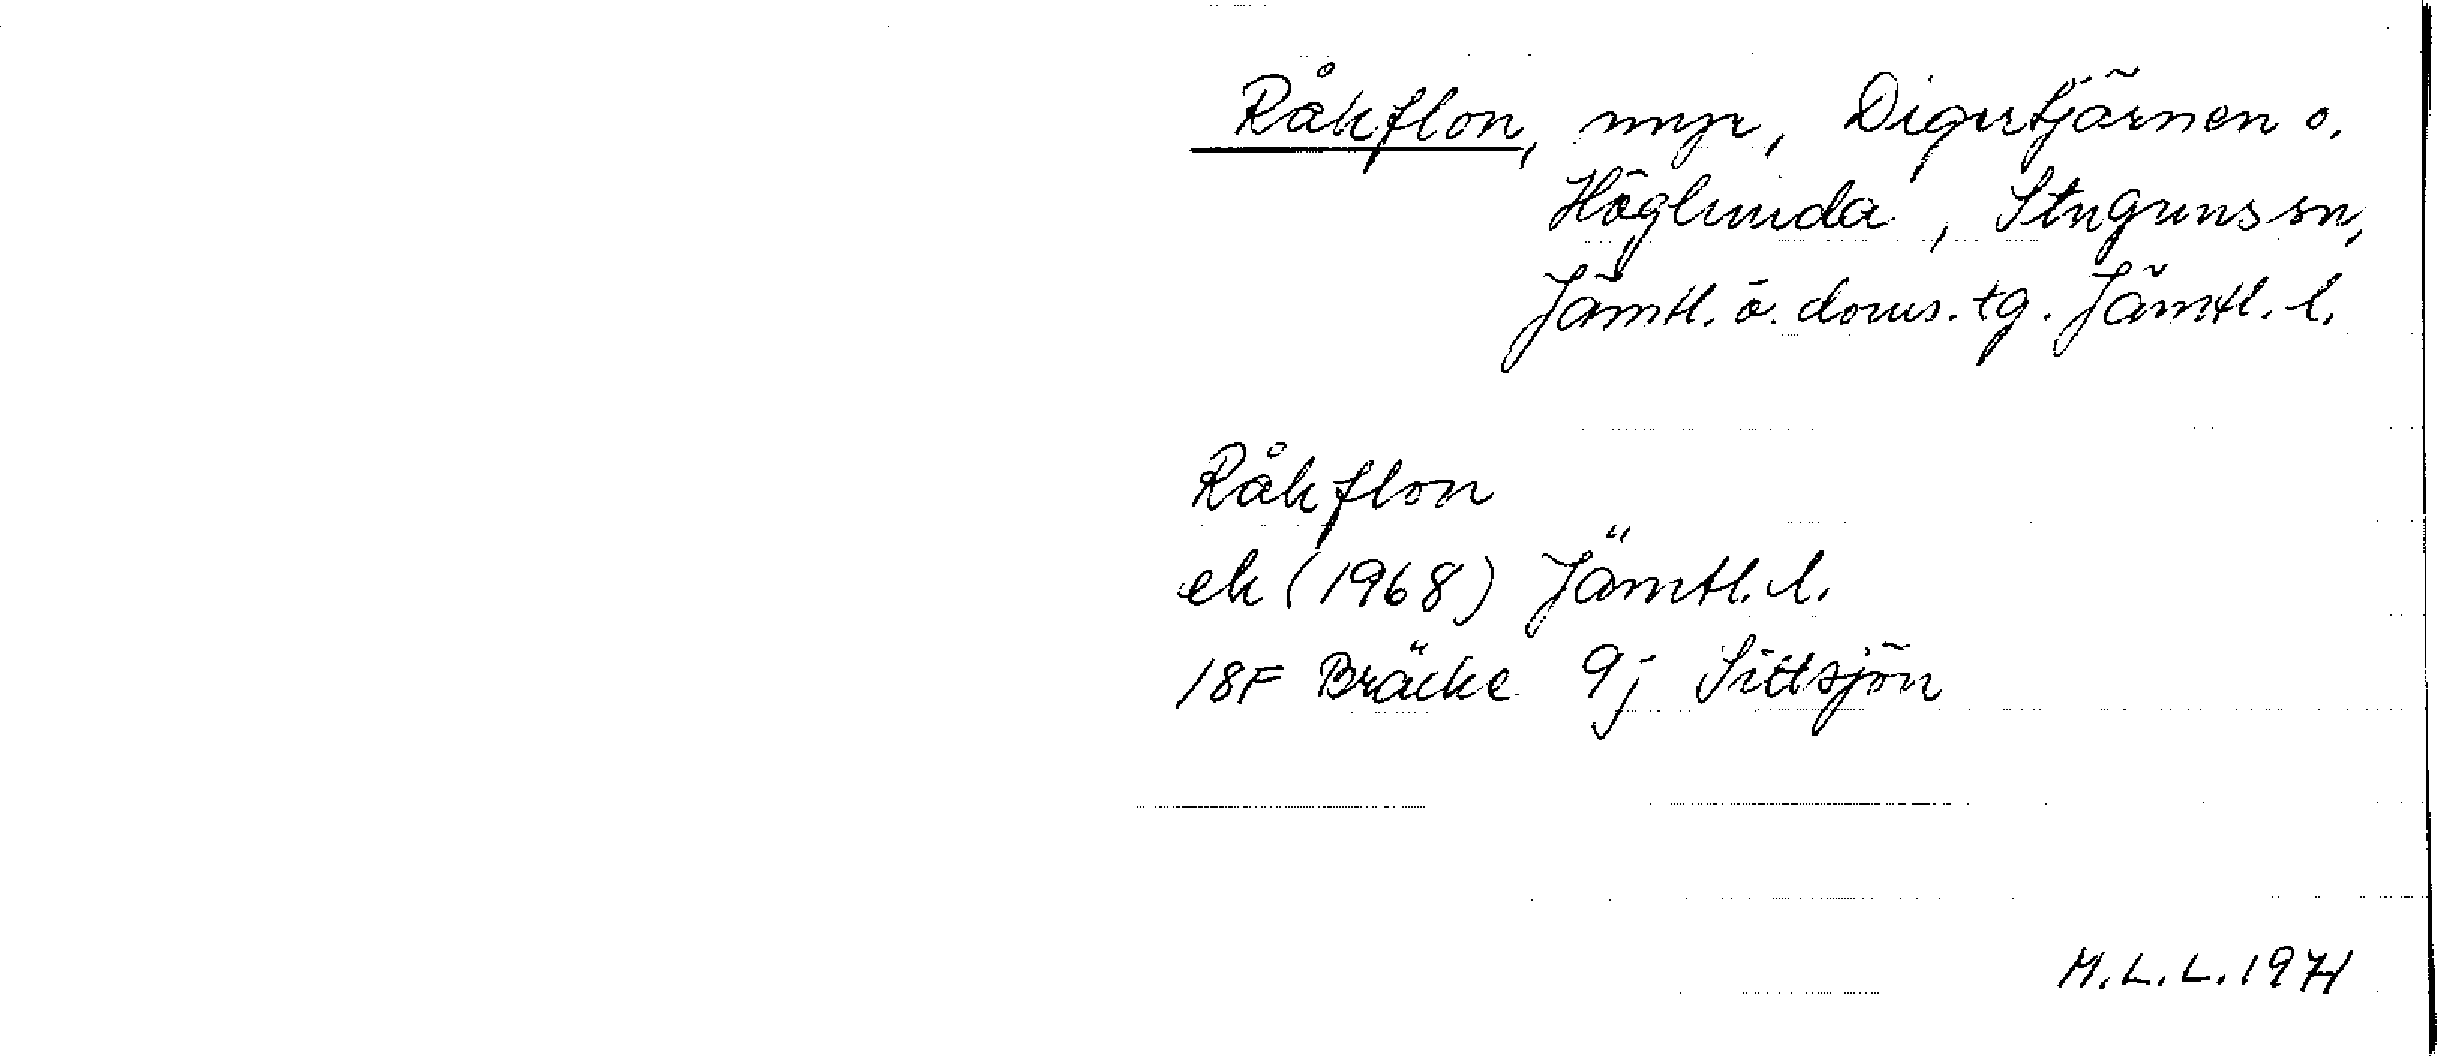 Råkflon, myr, Digertjärnen o.
Höglunda, Stuguns sn,
Jämtl. ö. doms. tg. Jämtl. l.
Råkflon
ek (1968) Jämtl. l.
18F Bräcke 9j Sittsjön
M.L.L. 1971